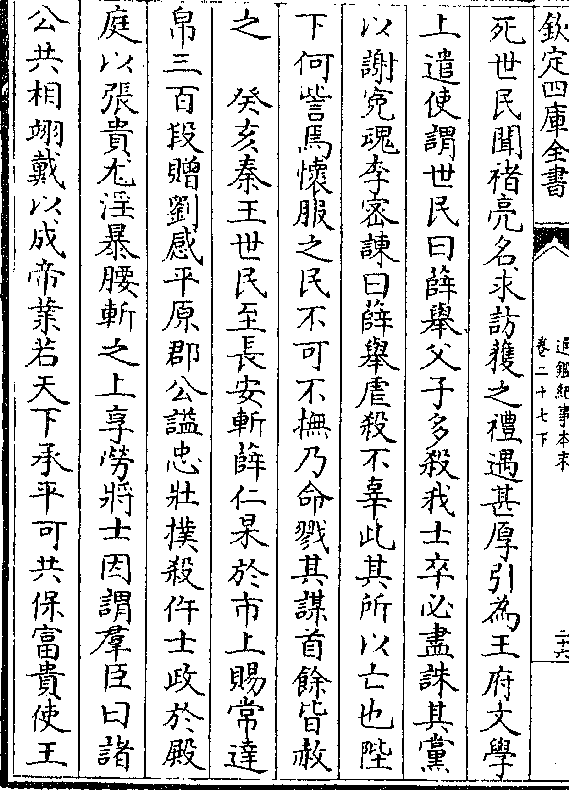 欽定四庫全書
通鑑紀事本末
卷二十七下
二十六
死世民聞褚亮名求訪獲之禮遇甚厚引為王府文學
上遣使謂世民曰薛舉父子多殺我士卒必盡誅其黨
以謝寃魂李密諫曰薛舉虐殺不辜此其所以亡也陛
下何讐焉懷服之民不可不撫乃命戮其謀首餘皆赦
之　癸亥秦王世民至長安斬薛仁杲於市上賜常達
帛三百段贈劉感平原郡公諡忠壯撲殺仵士政於殿
庭以張貴尤淫暴腰斬之上享勞將士因謂羣臣曰諸
公共相翊戴以成帝業若天下承平可共保富貴使王